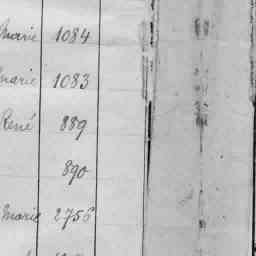 Marie 1084
Marie 1083
René 889
890
Marie 2756